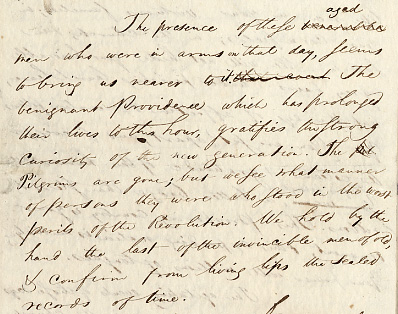 aged
The presence of these venerable
men who were in arms on that day, seems
to bring us nearer to it. The
benignant Providence which has prolonged
their lives to this hour, gratifies the strong
curiosity of the new generation. The
Pilgrims are gone; but we see what manner
of persons they were who stood in the worst
perils of the Revolution. We hold by the
hand the last of the invincible men of old,
& confirm from living lips the sealed
records of time.